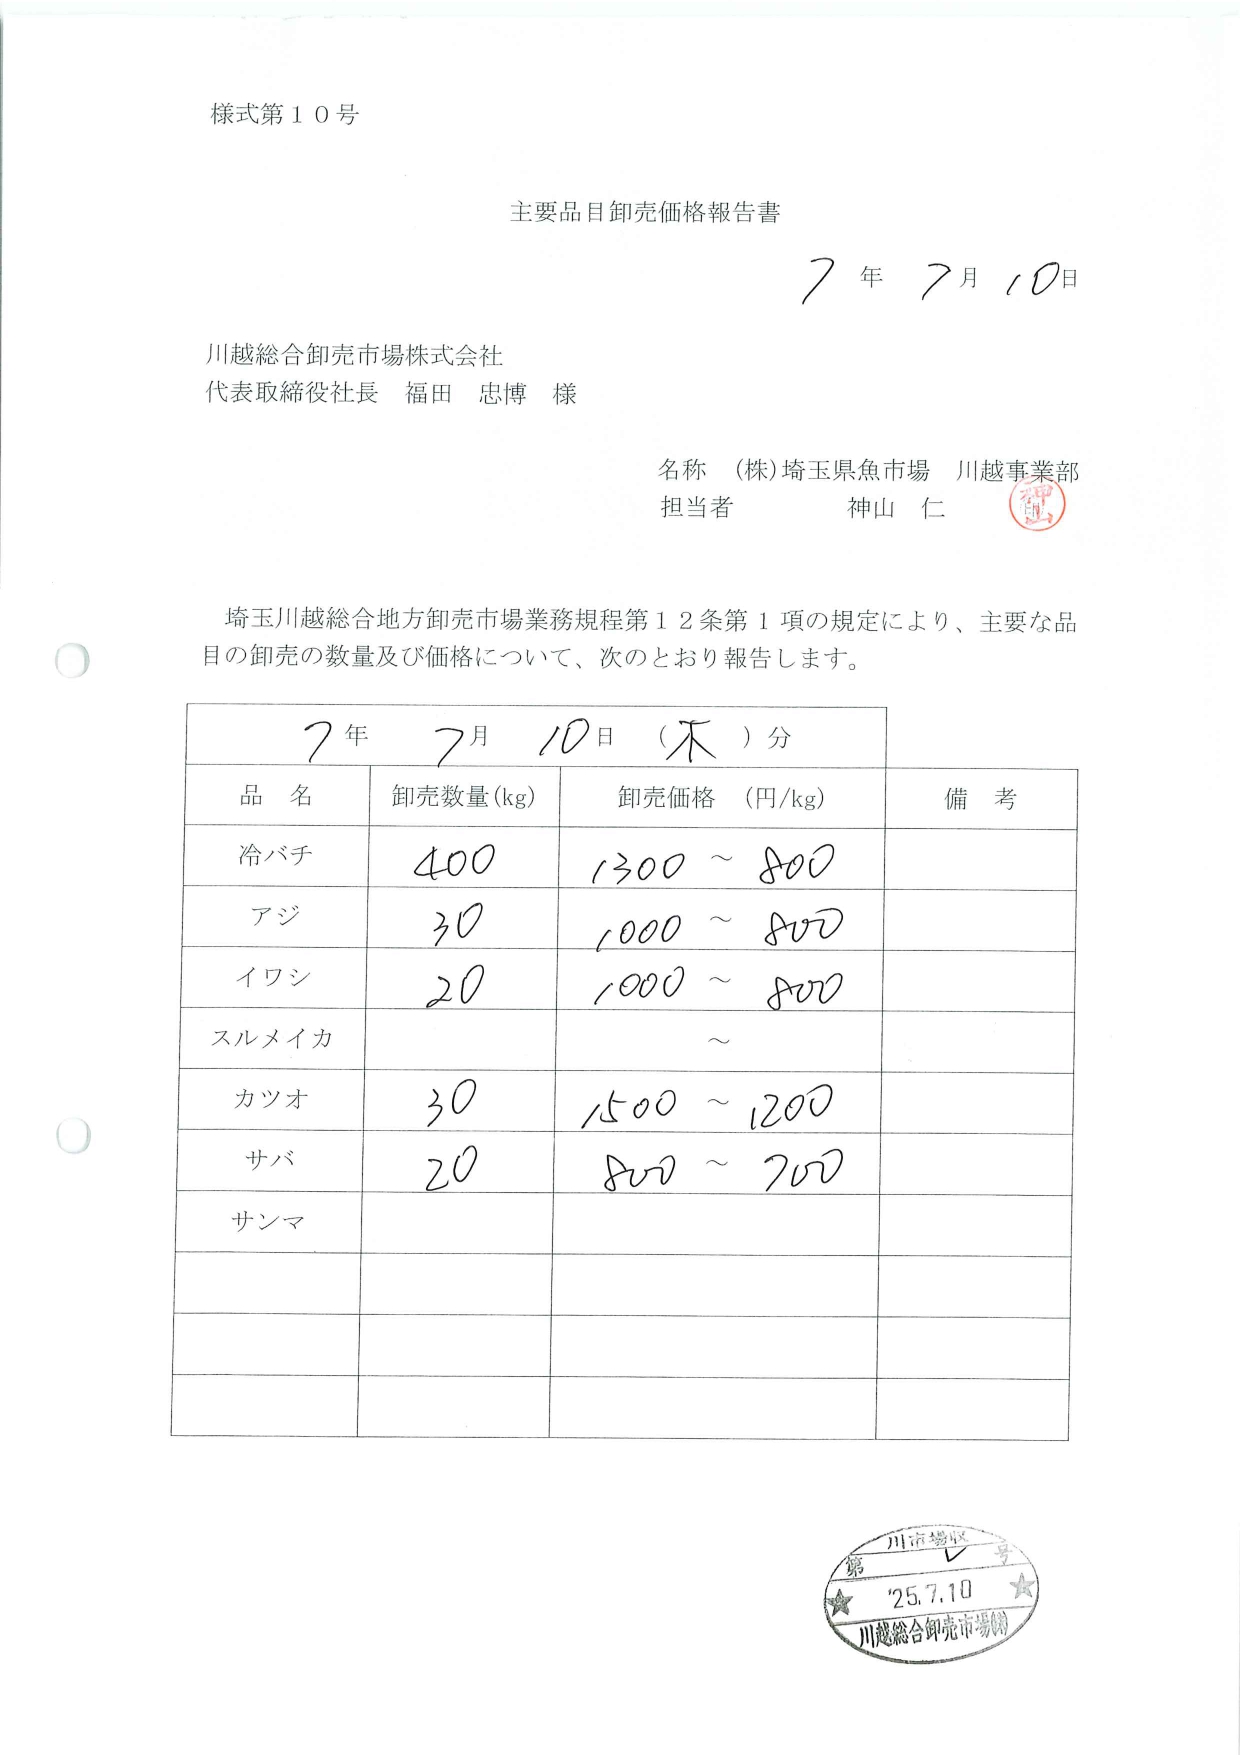 様式第１０号
主要品目卸売価格報告書
7 年 7 月 10 日
川越総合卸売市場株式会社
代表取締役社長　福田　忠博　様
名称　(株)埼玉県魚市場　川越事業部
担当者　神山　仁
神山
埼玉川越総合地方卸売市場業務規程第１２条第１項の規定により、主要な品
目の卸売の数量及び価格について、次のとおり報告します。
7 年 7 月 10 日 （木）分
品　名 卸売数量(kg) 卸売価格　(円/kg) 備　考
冷バチ 400 1300 ～ 800
アジ 30 1000 ～ 800
イワシ 20 1000 ～ 800
スルメイカ ～
カツオ 30 1500 ～ 1200
サバ 20 800 ～ 700
サンマ
川市場収
第 号
'25.7.10
川越総合卸売市場㈱